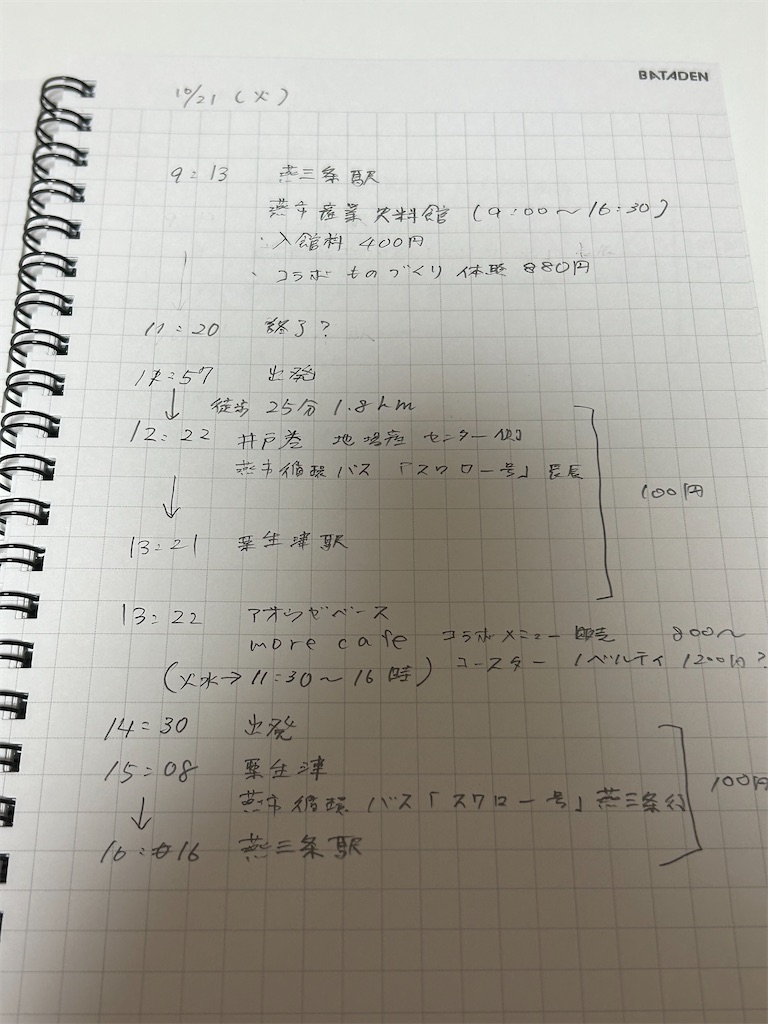 BATADEN
10/21 (火)
9:13 燕三条駅
燕市産業史料館 (9:00～16:30)
・入館料 400円
・コラボものづくり体験 880円
11:20 終了?
11:57 出発
↓ 徒歩 25分 1.8km
12:22 井戸巻 地場産センター側
燕市循環バス「スワロー号」
↓ 100円
13:21 粟生津駅
13:22 アオウゼベース
more cafe コラボメニュー 販売 800～
(火水→11:30～16時) コースター ノベルティ 1200円?
14:30 出発
15:08 粟生津
燕市循環バス「スワロー号」燕三条行 100円
↓
16:16 燕三条駅